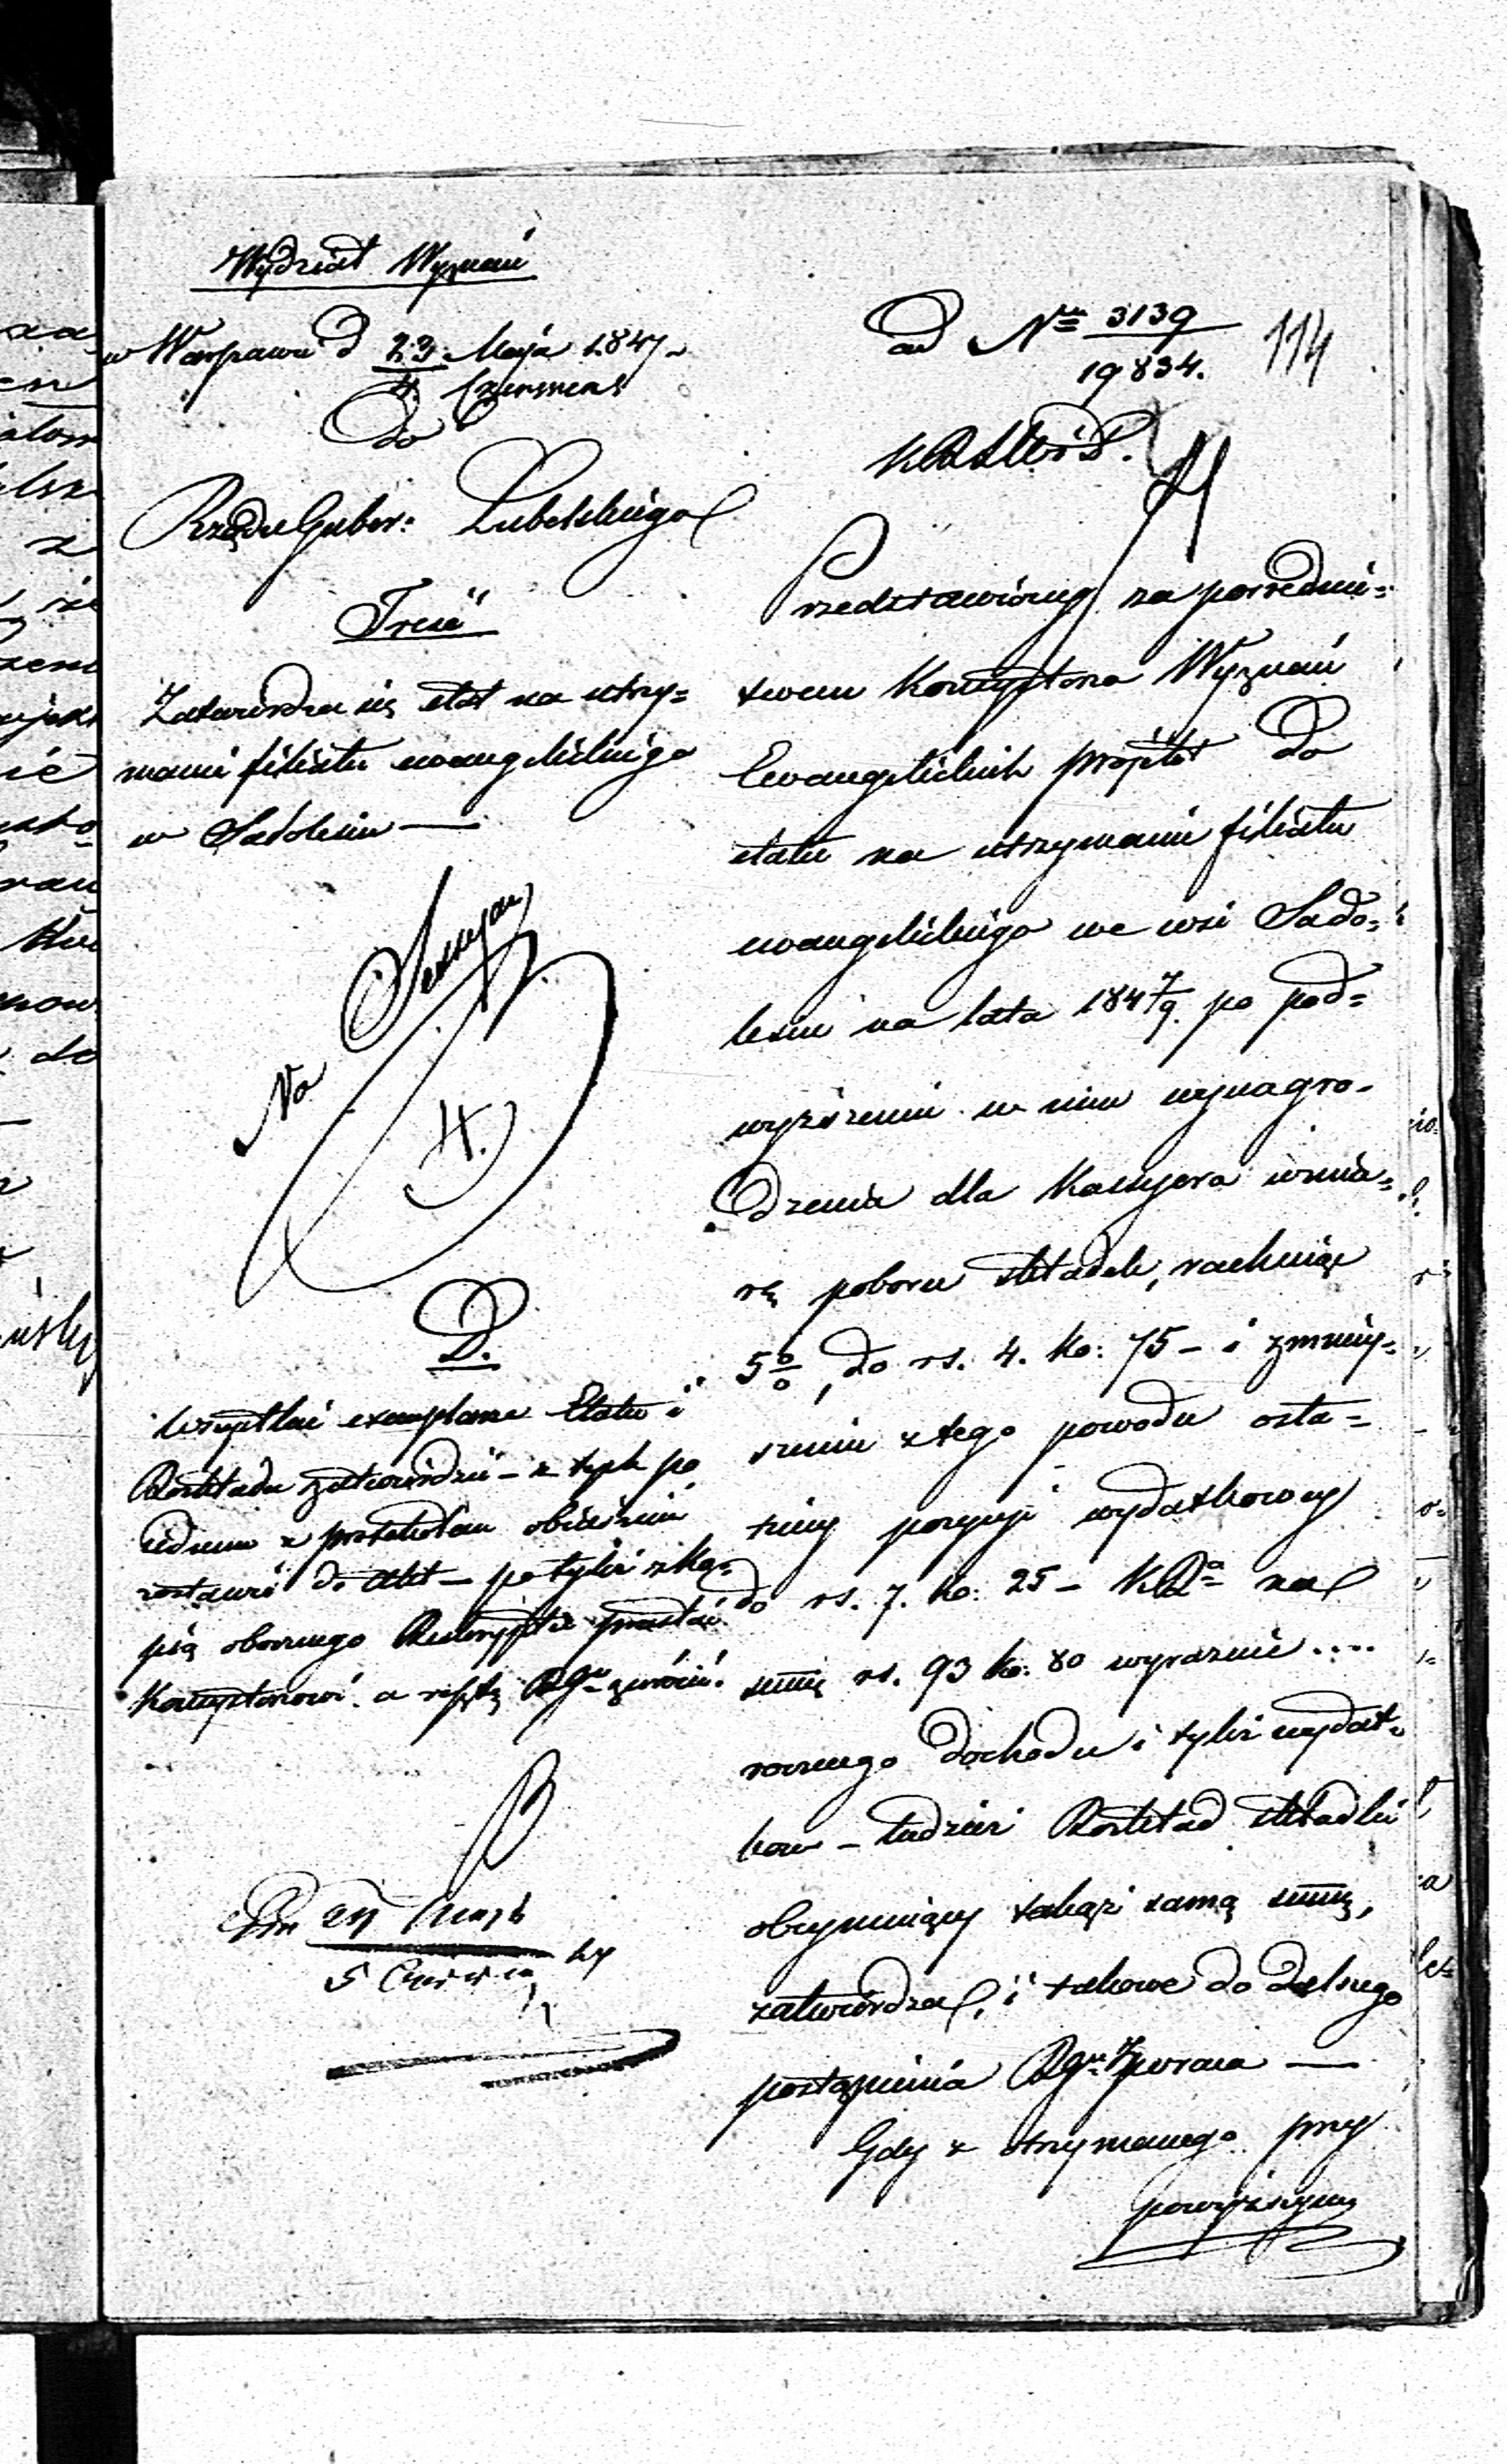 Wydział Wyznań
w Warszawie d 23 Maja 1847
4 Czerwca
do
Rządu Guber: Lubelskiego
Treść
Zatwierdza się etat na utrzy=
manie filiału ewangelickiego
w Sadolesiu —
Na Sessyą
D.
Wszystkie exemplarze Etatu i
Rozkładu zatwierdzić – z tych po
jednem z protokołem
zostawić do Akt – po tyleż z ko=
pią obecnego Reskryptu przesłać
Konsystorzowi a resztę Rgu zwrócić.
5 Czerwca 47
ad Nr 3139
19834.
114
Przedstawiony za pośredni=
twem Konsystorza Wyznań
Ewangelickich projekt do
etatu na utrzymanie filiału
ewangelickiego we wsi Sado=
lesiu na lata 1847/9 po pod=
wyższeniu w nim wynagro=
dzenia dla Kassyera w mia=
rę poboru składek, rachując
5%, do rs. 4. ko: 75 – i zmniey=
szeniu z tego powodu osta=
tniey pozycyi wydatkowey
do rs. 7. ko: 25 – K.R. na
summę rs. 93 ko: 80 wyraznie ....
rocznego dochodu i tyleż wydat=
kow – tudzież Rozkład składki
obeymuiący takąż samą summę,
zatwierdza, i takowe do dalszego
postąpienia Rgu zwraca —
Gdy z otrzymanego przy
powyższym